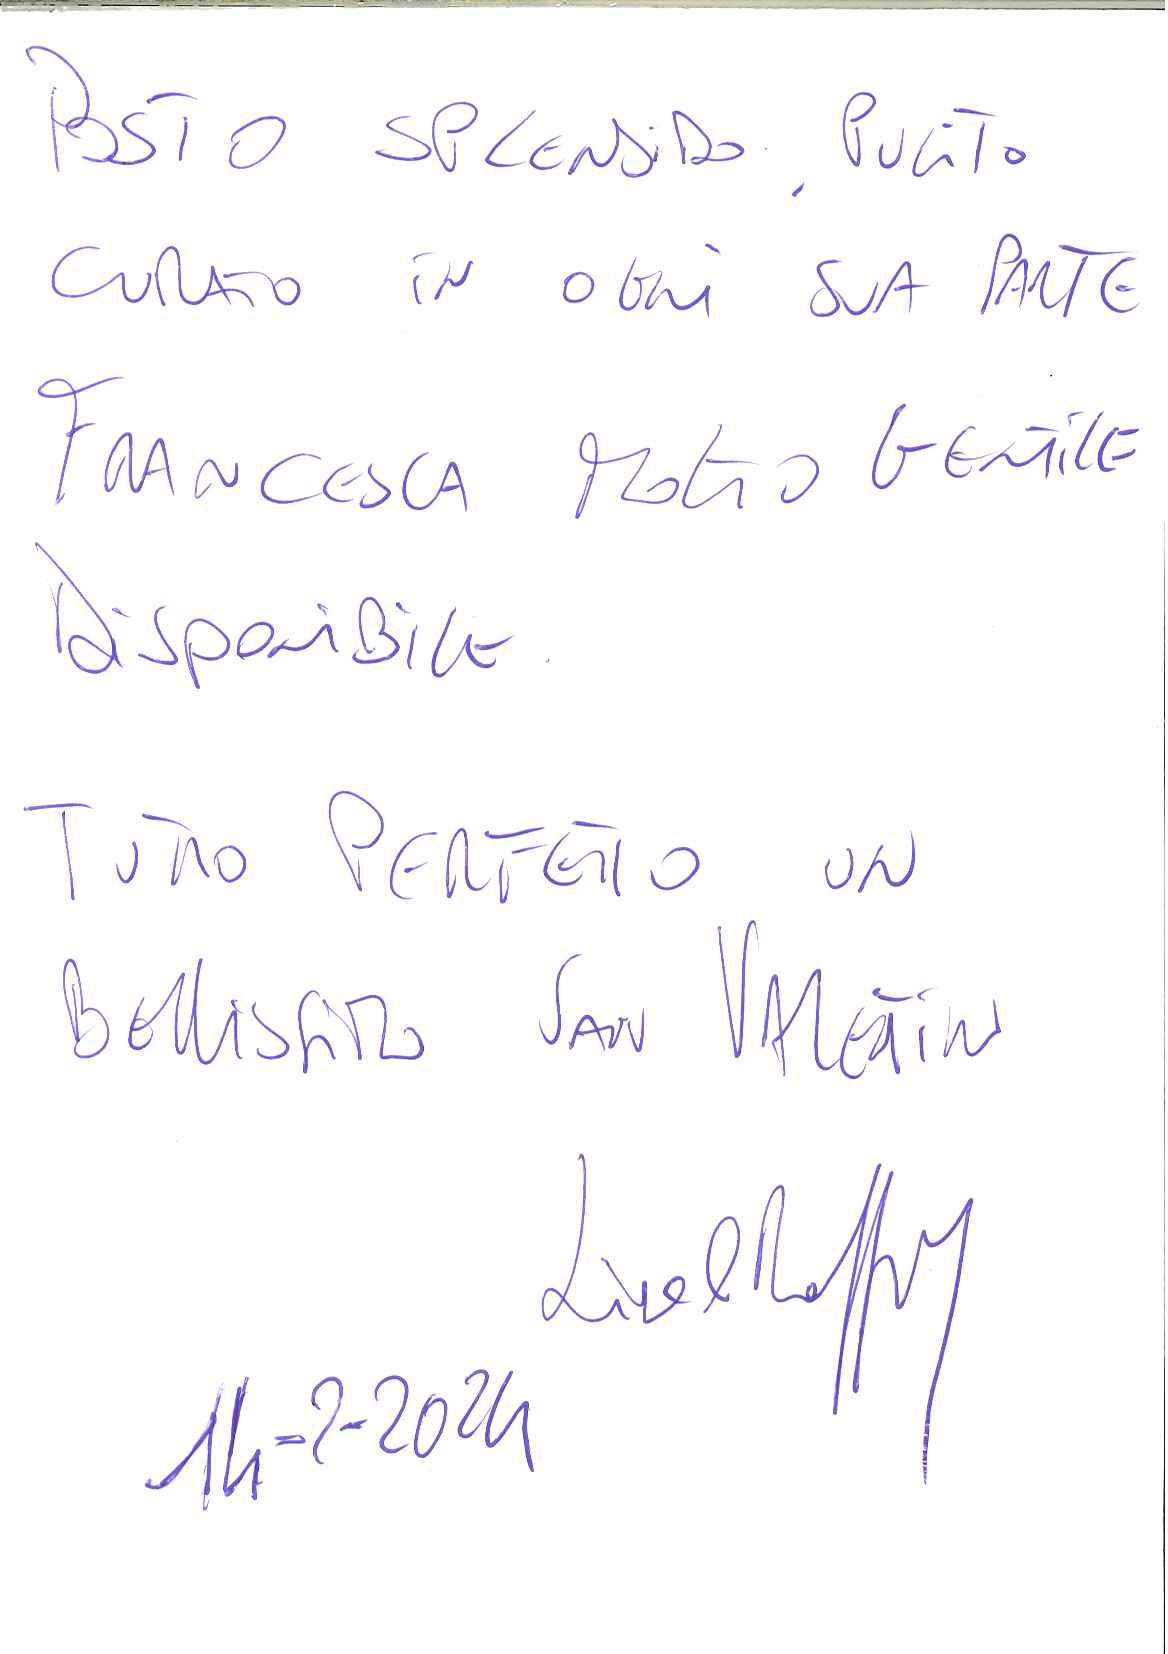 POSTO SPLENDIDO, PULITO
CURATO IN OGNI SUA PARTE
FRANCESCA MOLTO GENTILE
DISPONIBILE.
TUTTO PERFETTO UN
BELLISSIMO SAN VALENTINO
14-2-2024